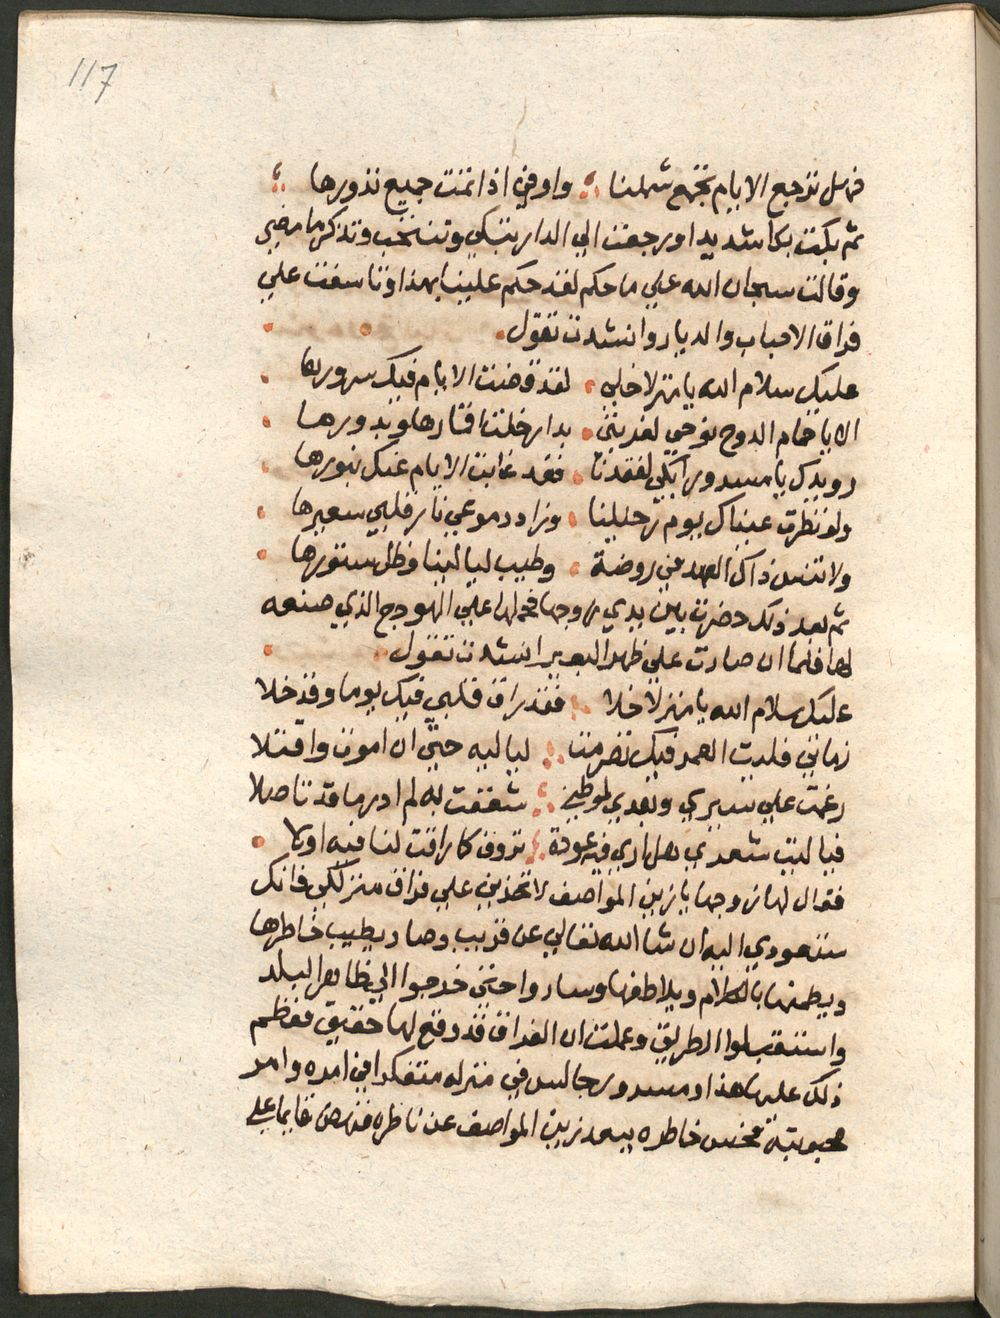 117
فهل ترجع الايام تجمع شملنا واوفي اذا تمت جميع نذورها
ثم بكت بكا شديدا ورجعت الي الدار تبكي وتنتحب وتذكر ما مضي
وقالت سبحان الله علي ما حكم لقد حكم علينا بهذا وتاسفت علي
فراق الاحباب والديار وانشدت تقول
عليك سلام الله يا منزلا خلي لقد قضت الايام فيك سرورها
الا يا حمام الدوح نوحي لغربتي بدار خلت اقمارها وبدورها
رويدك يا مسرور ابكي لفقدنا فقد غابت الايام عنك بنورها
ولو نظرت عيناك يوم رحيلنا وزاد دموعي نار قلبي سعيرها
ولا تنس ذاك العهد في روضة وطيب ليالينا وظل ستورها
ثم بعد ذلك حضرت بين يدي زوجها فحملها علي الهودج الذي صنعه
لها فلما ان صارت علي ظهر البعير انشدت تقول
عليك سلام الله يا منزلا خلا فقد راق قلبي فيك يوما وقد خلا
زماني فليت العمر فيك تصرمت لياليه حتي ان اموت واقتلا
رغمت علي سيري وبعدي لموطني شغفت به لم ادر ما قد تاصلا
فيا ليت شعري هل اري فيه عودة تروق كما راقت لنا فيه اولا
فقال لها زوجها يا زين المواصف لا تحزني علي فراق منزلكي فانك
ستعودي اليه ان شا الله تعالي عن قريب وصار يطيب خاطرها
ويطمنها بالكلام ويلاطفها وساروا حتي خرجوا الي ظاهر البلد
واستقبلوا الطريق وعلمت ان الفراق قد وقع لها حقيق فعظم
ذلك عليها هذا ومسرور جالس في منزله متفكرا في امره وامر
محبوبته فحس خاطره ببعد زين المواصف عن ناظره فنهض قايما علي